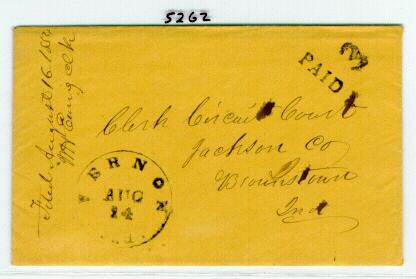 5262
3
PAID
Filed August 16 1854
Clk
Clerk Circuit Court
Jackson Co
Brownstown
Ind
VERNON
AUG
14